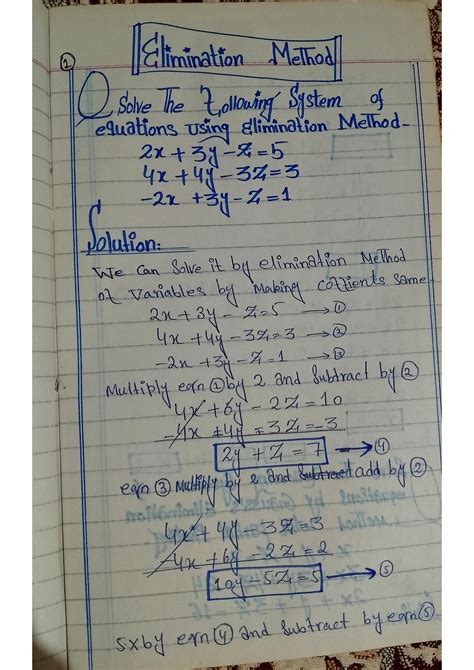 1
Elimination Method
Q Solve The Following System of
equations using Elimination Method-
2x + 3y - Z = 5
4x + 4y - 3Z = 3
-2x + 3y - Z = 1
Solution:
We can Solve it by elimination Method
of variables by Making cofficents same-
2x + 3y - Z = 5 → ①
4x + 4y - 3Z = 3 → ②
-2x + 3y - Z = 1 → ③
Multiply eqn ① by 2 and Subtract by ②
4x + 6y - 2Z = 10
-4x ± 4y ∓ 3Z = -3
2y + Z = 7 → ④
eqn ③ Multiply by 2 and Subtract add by ②
4x + 4y - 3Z = 3
-4x + 6y - 2Z = 2
10y - 5Z = 5 → ⑤
5xby eqn ④ and Subtract by eqn ⑤